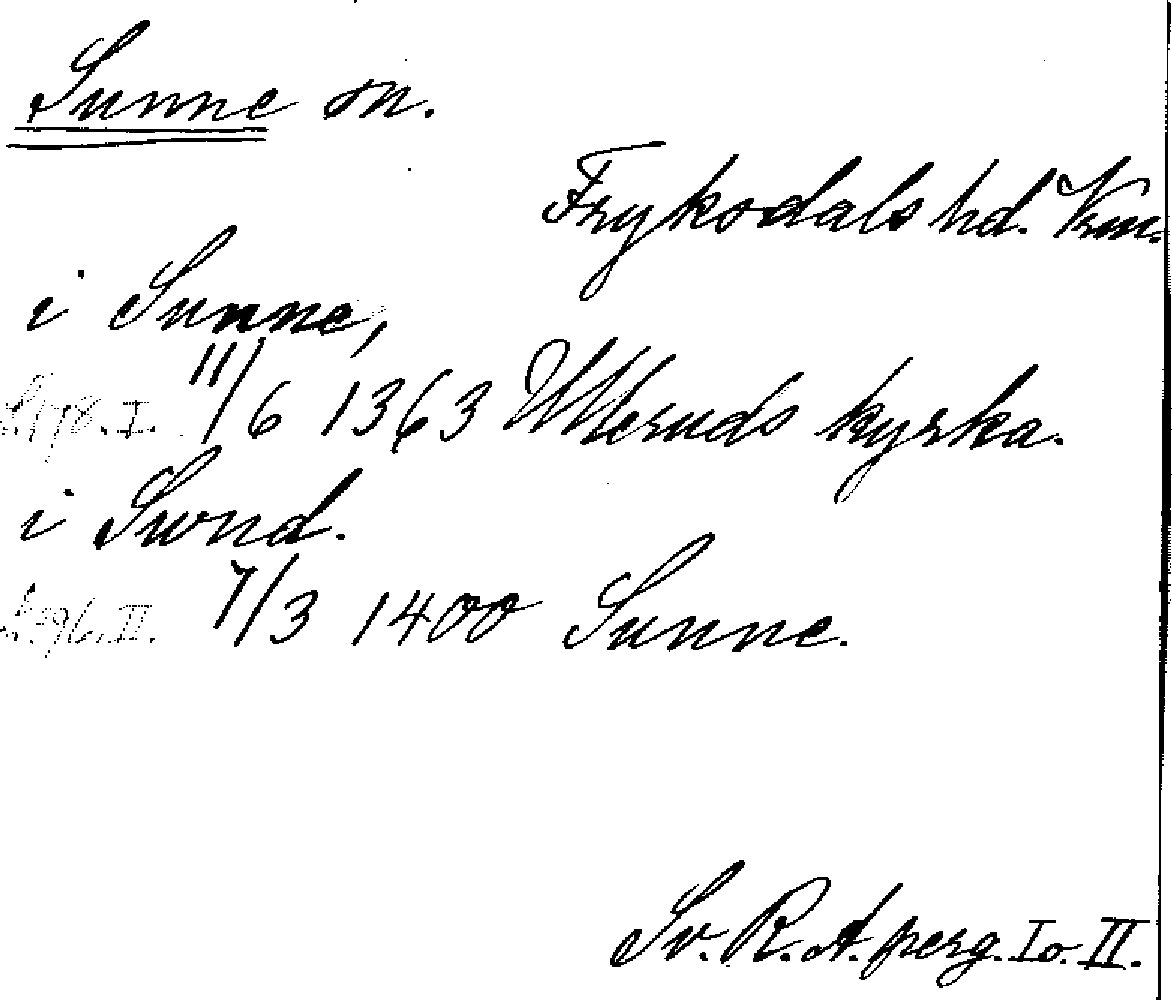 Sunne sn.
Fryksdals hd. Vrm.
i Sunne,
11/6 1363 Ulleruds kyrka.
i Swnd.
7/3 1400 Sunne.
Sv. R. A. perg. I o. II.